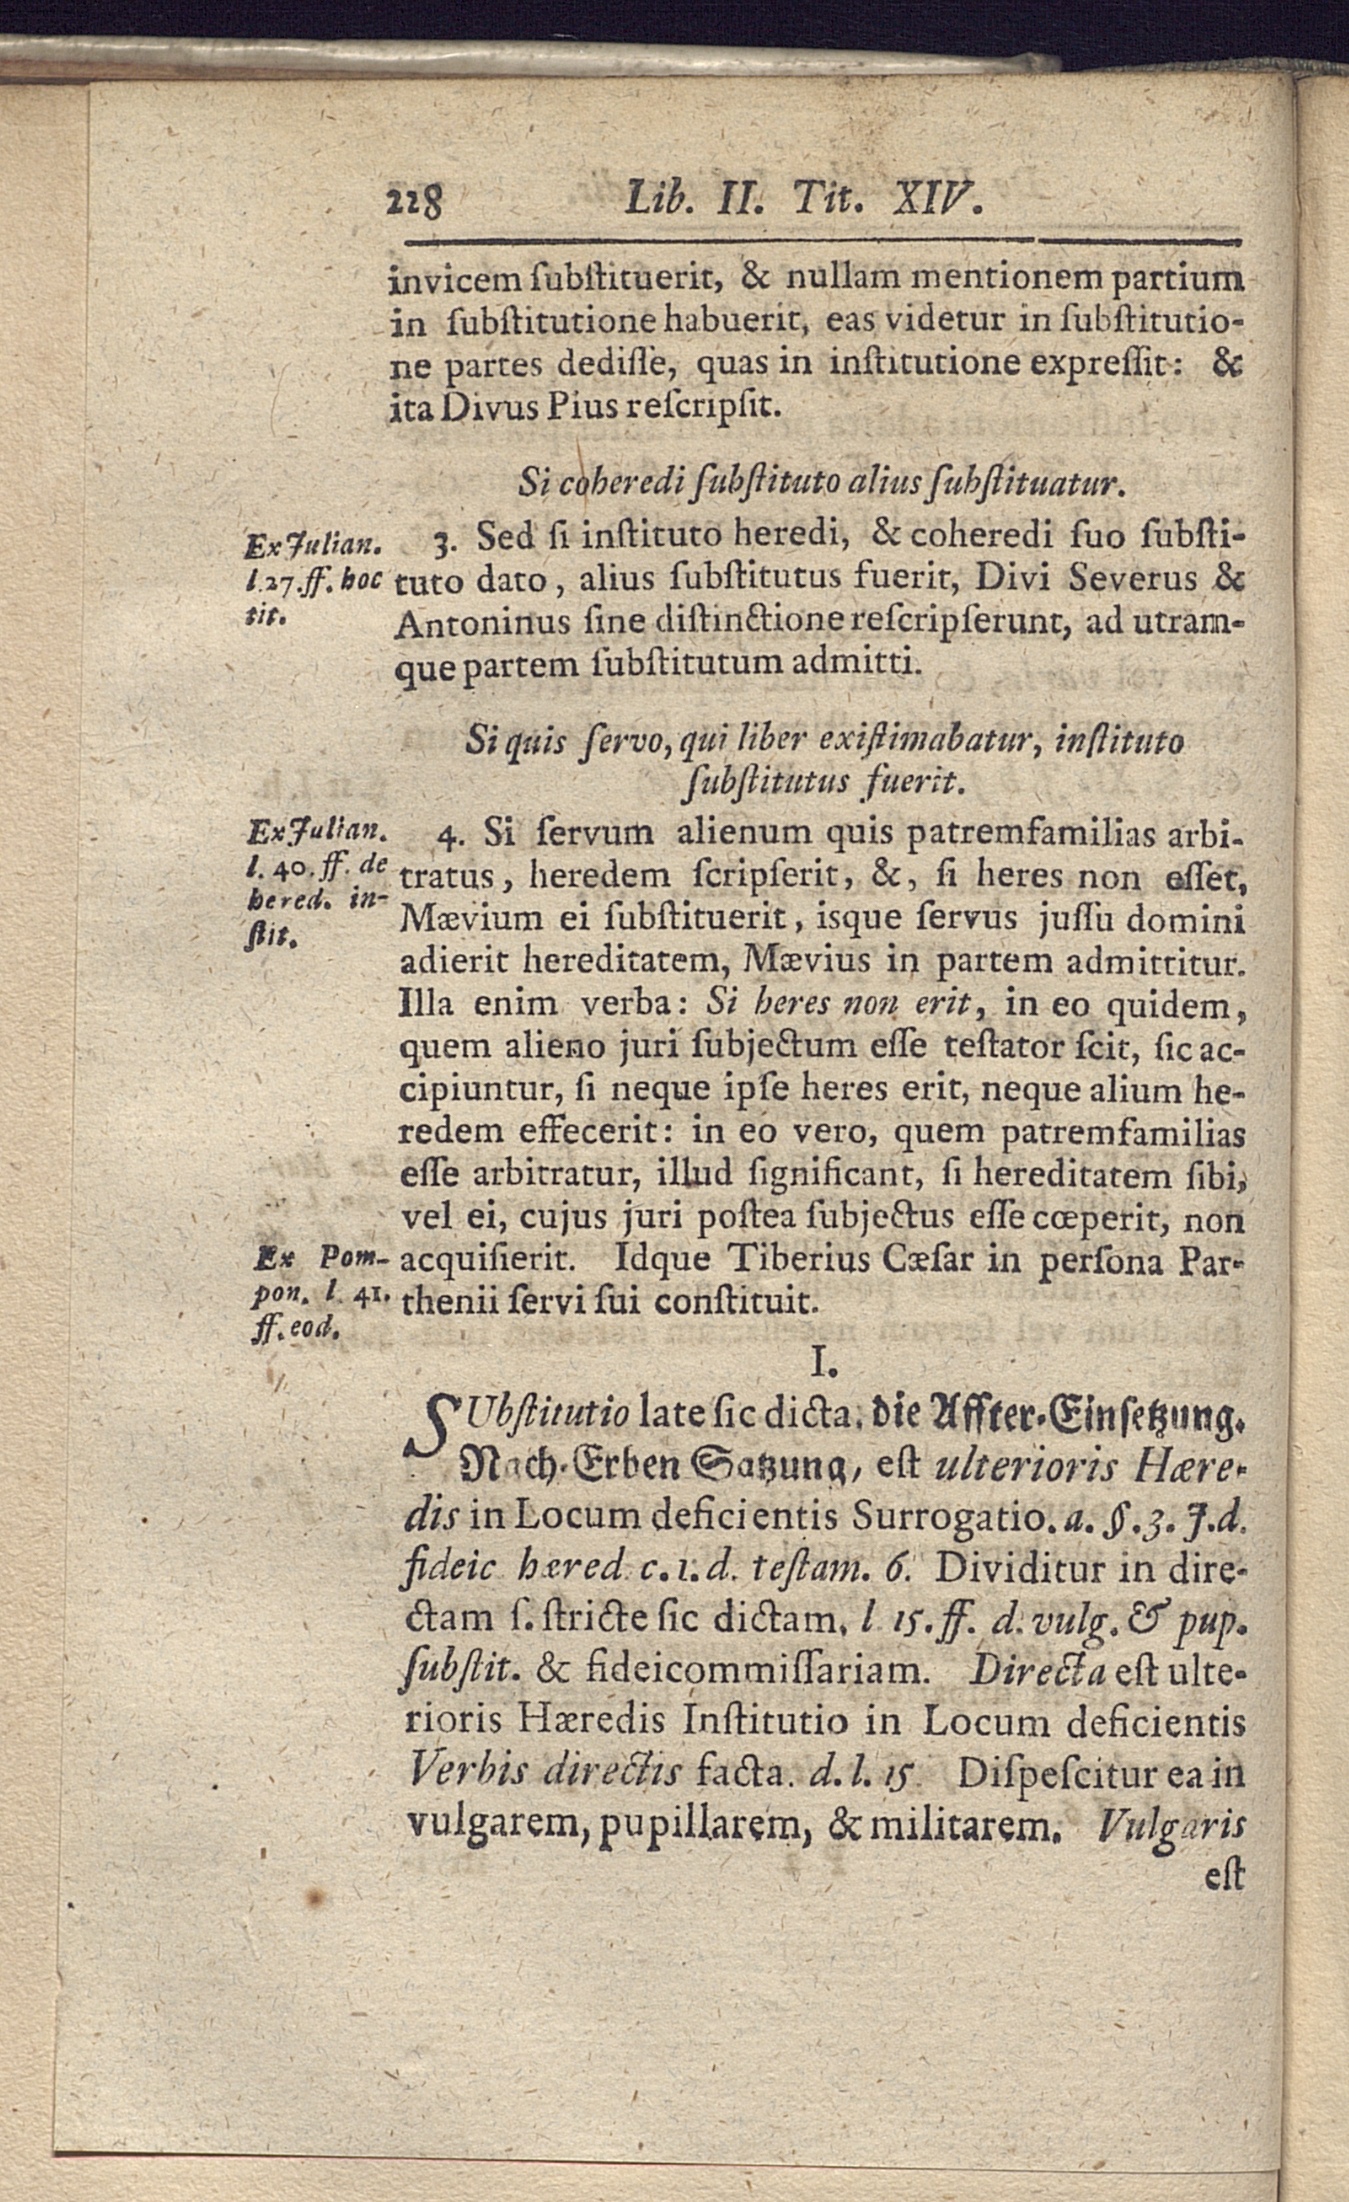 228 Lib. II. Tit. XIV.
invicem ſubſtituerit, & nullam mentionem partium
in ſubſtitutione habuerit, eas videtur in ſubſtitutio-
ne partes dediſſe, quas in inſtitutione expreſſit: &
ita Divus Pius reſcripſit.
Si coheredi ſubſtituto alius ſubſtituatur.
Ex Julian.
l. 27. ff. hoc
tit.
3. Sed ſi inſtituto heredi, & coheredi ſuo ſubſti-
tuto dato, alius ſubſtitutus fuerit, Divi Severus &
Antoninus ſine diſtinctione reſcripſerunt, ad utram-
que partem ſubſtitutum admitti.
Si quis ſervo, qui liber exiſtimabatur, inſtituto
ſubſtitutus fuerit.
Ex Julian.
l. 40. ff. de
hered. in-
ſtit.
4. Si ſervum alienum quis patremfamilias arbi-
tratus, heredem ſcripſerit, &, ſi heres non eſſet,
Mævium ei ſubſtituerit, isque ſervus juſſu domini
adierit hereditatem, Mævius in partem admittitur.
Illa enim verba: Si heres non erit, in eo quidem,
quem alieno juri ſubjectum eſſe teſtator ſcit, ſic ac-
cipiuntur, ſi neque ipſe heres erit, neque alium he-
redem effecerit: in eo vero, quem patremfamilias
eſſe arbitratur, illud ſignificant, ſi hereditatem ſibi,
vel ei, cujus juri poſtea ſubjectus eſſe cœperit, non
acquiſierit. Idque Tiberius Cæſar in perſona Par-
thenii ſervi ſui conſtituit.
Ex Pom-
pon. l. 41.
ff. eod.
I.
SUbſtitutio late ſic dicta. die Affter-Einſetzung.
Nach-Erben Satzung, eſt ulterioris Hære-
dis in Locum deficientis Surrogatio. a. §. 3. J. d.
fideic hæred. c. 1. d. teſtam. 6. Dividitur in dire-
ctam ſ. ſtricte ſic dictam. l 15. ff. d. vulg. & pup.
ſubſtit. & fideicommiſſariam. Directa eſt ulte-
rioris Hæredis Inſtitutio in Locum deficientis
Verbis directis facta. d. l. 15. Diſpeſcitur ea in
vulgarem, pupillarem, & militarem. Vulgaris
eſt